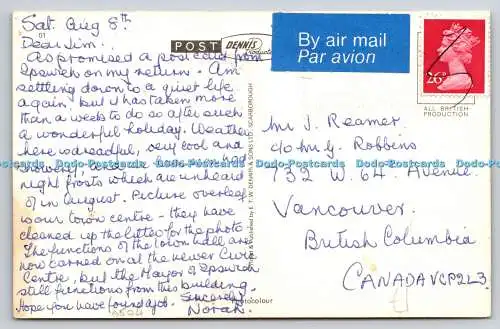 Sat. Aug 8th
Dear Jim.
As promised a post card from
Ipswich on my return. Am
settling down to a quiet life
again, but it has taken more
than a weeks to do so after such
a wonderful holiday. Weather
here is dreadful, very cool and
showery, and we have even had
night frosts which are unheard
of in August. Picture overleaf
is our town centre - they have
cleaned up the litter for the photo
The functions of the town hall are
now carried on at the newer Civic
Centre, but the Mayor of Ipswich
still functions from this building.
Hope you have found a job. Sincerely
Norah.
POST
DENNIS
Productions
By air mail
Par avion
26P
ALL BRITISH
PRODUCTION
Mr J. Reamer
c/o Mr G. Robbins
732 W. 64th Avenue.
Vancouver.
British Columbia
CANADA VCP2L3
E. T. W. DENNIS & SONS LTD., SCARBOROUGH
Photocolour
Dodo-Postcards Dodo-Postcards Dodo-Postcards Dodo-Postcards Dodo-Postcards